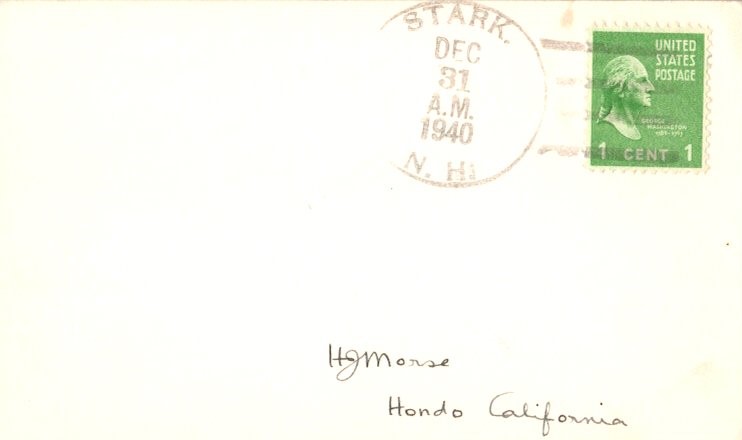 STARK.
DEC
31
A.M.
1940
N. H.
UNITED
STATES
POSTAGE
GEORGE
WASHINGTON
1 CENT 1
HJMorse
Hondo California